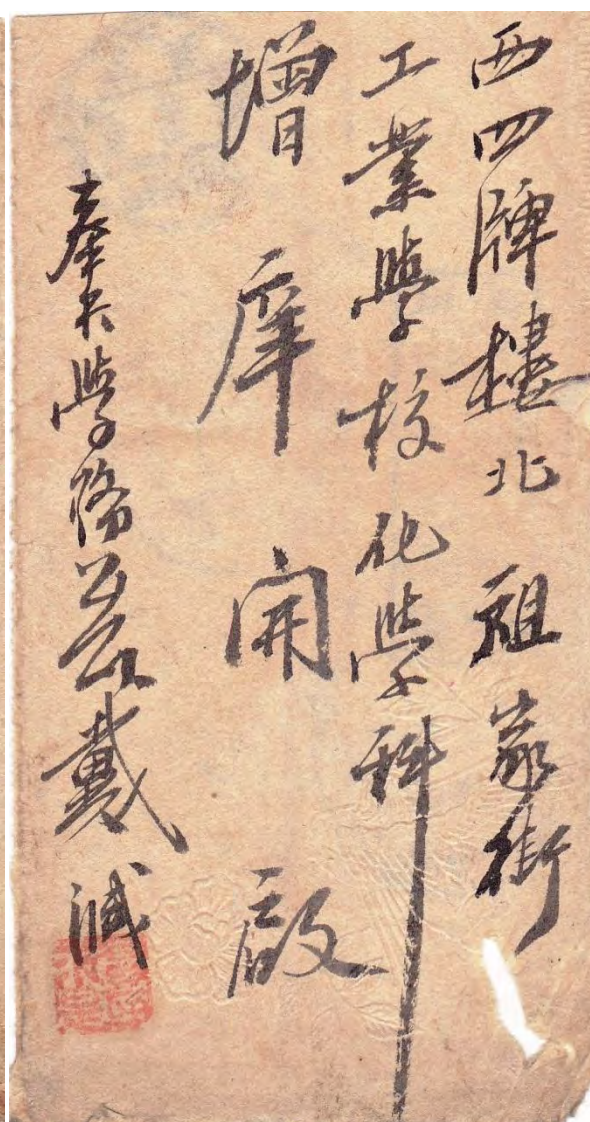 西四牌樓北 祖家街
工業學校化學科
增庠開啟
奉天學務公所戴緘